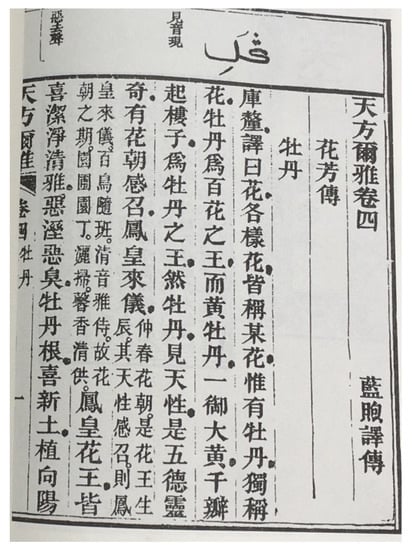 見音現
惡去聲
天方爾雅卷四 藍煦譯傳
花芳傳
牡丹
庫釐譯曰花各樣花皆稱某花惟有牡丹獨稱
花牡丹爲百花之王而黃牡丹一御大黃千瓣
起樓子爲牡丹之王然牡丹見天性是五德靈
奇有花朝感召鳳皇來儀
仲春花朝。是花王生
辰。其天性感召。則鳳
皇來儀。百鳥隨班。清音雅侍。故花
朝之期。園圃園丁。灑掃。馨香清供。
鳳皇花王皆
喜潔淨清雅惡溼惡臭牡丹根喜新土植向陽
天方爾雅 卷四 牡丹 一